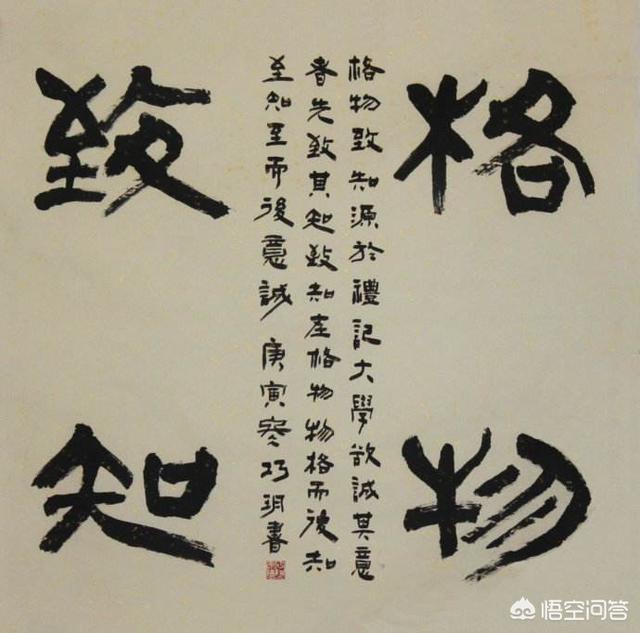 格物
格物致知源於禮記大學欲誠其意
者先致其知致知在格物物格而後知
至知至而後意誠 庚寅冬巧玥書
致知
悟空问答